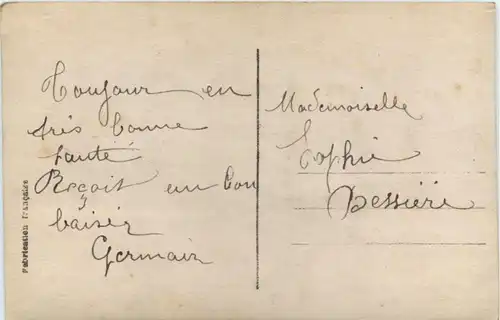 Toujour en
très bonne
santé
Reçoit un bon
baisér
Germain
Mademoiselle
Sophie
Dessiéré
Fabrication Française